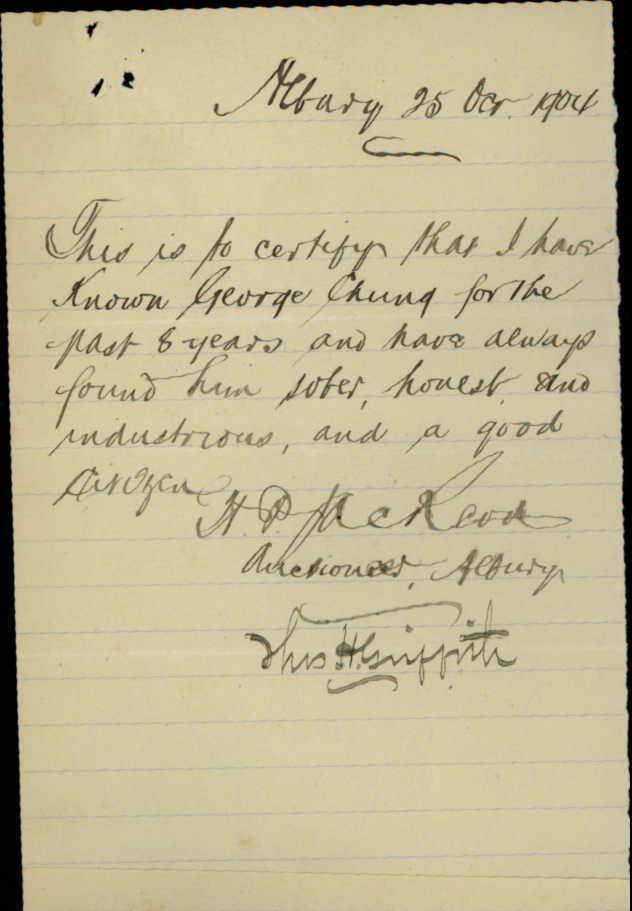 Albury 25 Oct. 1904
This is to certify that I have
Known George Chung for the
past 8 years and have always
found him sober, honest and
industrious, and a good
Citizen
H. P. McLeod
Auctioneer, Albury
Thos H. Griffith